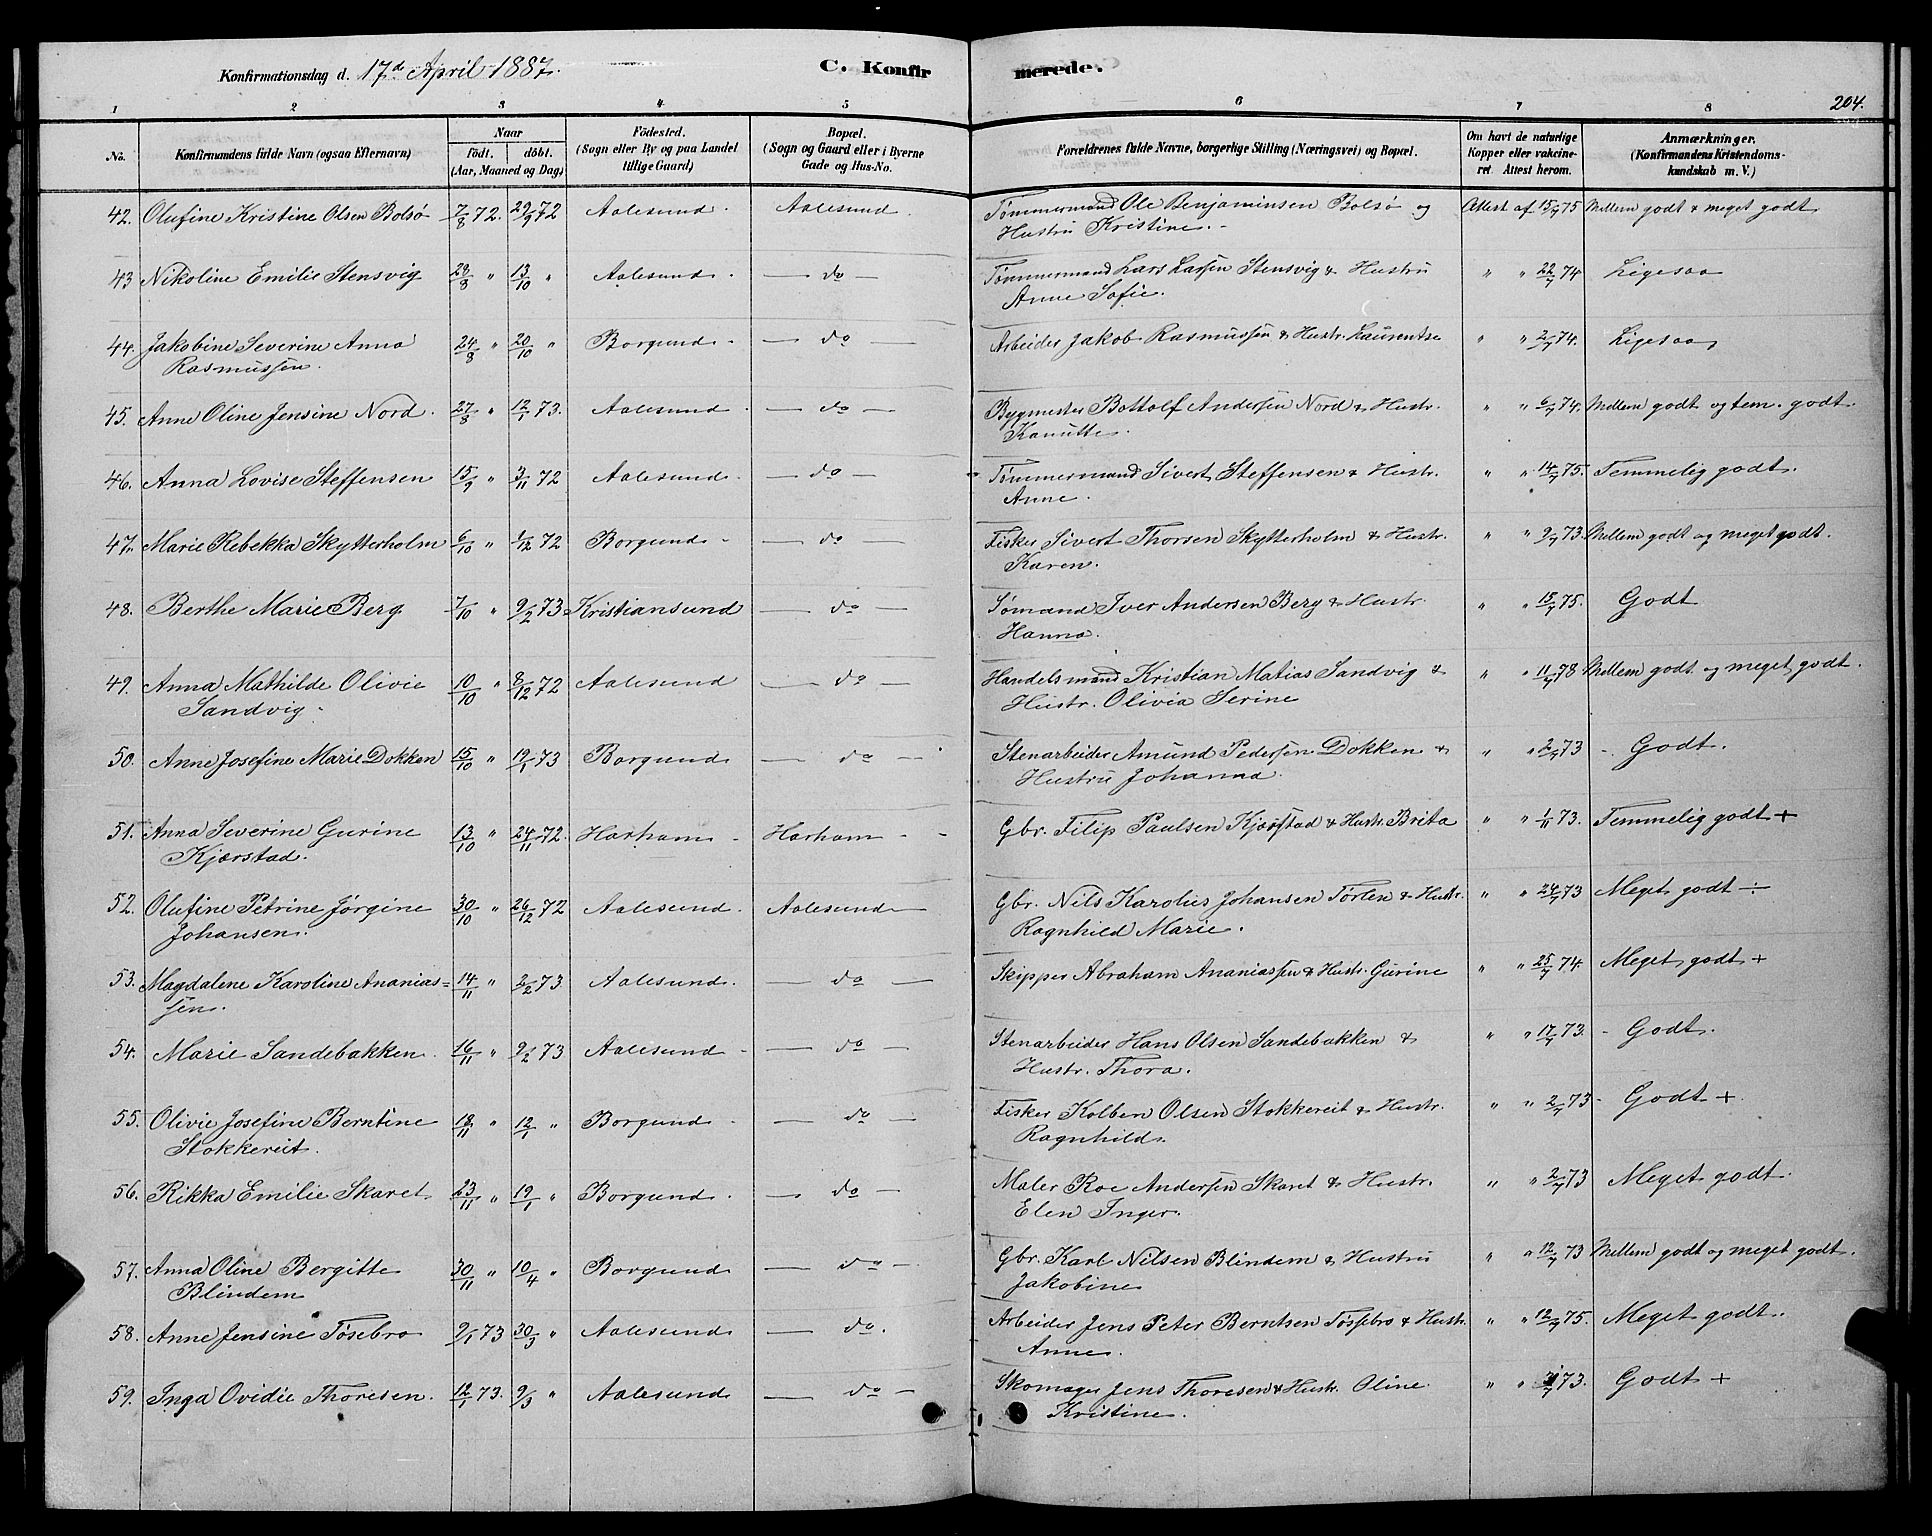 Konfirmationsdag d. 17d April 1887. C. Konfirmerede.
204.
1 2 3 4 5 6 7 8
No. Konfirmandens fulde Navn (ogsaa Efternavn) Naar født. døbt. (Aar, Maaned og Dag) Fødested. (Sogn eller By og paa Landet tillige Gaard) Bopæl. (Sogn og Gaard eller i Byerne Gade og Hus-No. Forældrenes fulde Navne, borgerlige Stilling (Næringsvei) og Bopæl. Om havt de naturlige Kopper eller vakcineret. Attest herom. Anmærkninger. (Konfirmandens Kristendomskundskab m. V.)
42. Olufine Kristine Olsen Bolsø 7/8 72. 29/9 72 Aalesund. Aalesund. Tømmermand Ole Benjaminsen Bolsø og Attest af 15/7 75 Mellem godt & meget godt
Hustru Kristine.
43 Nikoline Emilie Stensvig 28/8 " 13/10 " Aalesund. — do — Tømmermand Lars Larsen Stensvig & Hustru " " 22/7 74 Ligesaa
Anne Sofie.
44. Jakobine Severine Anna 24/8 " 20/10 " Borgund. — do — Arbeider Jakob Rasmussen & Hustr. Laurentse " " 2/7 74. Ligesaa
Rasmussen.
45. Anne Oline Jensine Nord. 27/8 " 12/1 73. Aalesund. — do — Bygmester Bottolf Andersen Nord & Hustr. " " 6/7 74. Mellem godt og tem. godt.
Kanutte.
46. Anna Lovise Steffensen 15/9 " 3/11 72 Aalesund. — do — Tømmermand Sivert Steffensen & Hustr. " " 14/7 75. Temmelig godt.
Anne.
47. Marie Rebekka Skytterholm 6/10 " 1/12 72 Borgund — do Fisker Sivert Thorsen Skytterholm & Hustr. " " 9/7 73. Mellem godt og meget godt.
Karen.
48. Berthe Marie Berg 7/10 " 9/2 73 Kristiansund — do — Sømand Iver Andersen Berg & Hustr. " " 15/7 75. Godt
Hanna.
49. Anna Mathilde Olivie 10/10 " 8/12 72 Aalesund — do — Handelsmand Kristian Matias Sandvig & " " 11/7 78 Mellem godt og meget godt.
Sandvig Hustr. Olivia Serine
50. Anne Josefine Marie Dokken 15/10 " 19/1 73 Borgund — do — Stenarbeider Amund Pedersen Dokken & " " 2/7 73 Godt.
Hustru Johanna.
51. Anna Severine Gurine 13/10 " 24/11 72. Harham Harham Gbr. Filip Paulsen Kjærstad & Hustr. Brita " " 1/11 73. Temmelig godt +
Kjærstad.
52. Olufine Petrine Jørgine 30/10 " 26/12 72 Aalesund. Aalesund Gbr. Nils Karolius Johansen Tørlen & Hustr. " " 24/7 73 Meget godt ÷
Johansen. Ragnhild Marie.
53. Magdalene Karoline Ananias= 14/11 " 2/2 73 Aalesund. — do — Skipper Abraham Ananiassen & Hustr. Gurine " " 25/7 74. Meget godt +
sen.
54. Marie Sandebakken. 16/11 " 9/2 73 Aalesund — do — Stenarbeider Hans Olsen Sandebakken & " " 17/7 73. Godt.
Hustr. Thora.
55. Olivie Josefine Berntine 19/11 " 12/1 " Borgund — do — Fisker Kolben Olsen Stokkereit & Hustr. " " 2/7 73 Godt +
Stokkereit. Ragnhild.
56. Rikka Emilie Skaret 23/11 " 19/1 " Borgund. — do — Maler Roe Andersen Skaret & Hustr. " " 2/7 73 Meget godt
Elen Inger.
57. Anna Oline Bergitte 30/11 " 10/4 " Borgund — do — Gbr. Karl Nilsen Blindem & Hustru " " 12/7 73 Mellem godt og meget godt.
Blindem Jakobine
58. Anne Jensine Tøsebro 9/1 73 30/3 " Aalesund — do. Arbeider Jens Peter Berntsen Tøssebro & Hustr. " " 12/7 75. Meget godt.
Anne.
59. Inga Ovidie Thoresen. 12/1 73. 9/3 " Aalesund — do — Skomager Jens Thoresen & Hustr. Oline " " 73. Godt +
Kristine.